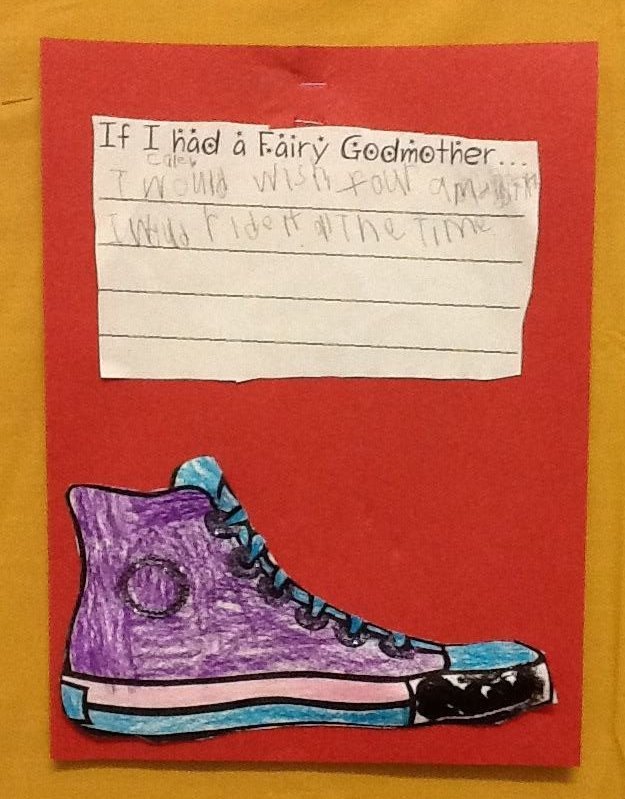 If I had a Fairy Godmother...
Caleb
I would wish four a
I ride it all The Time